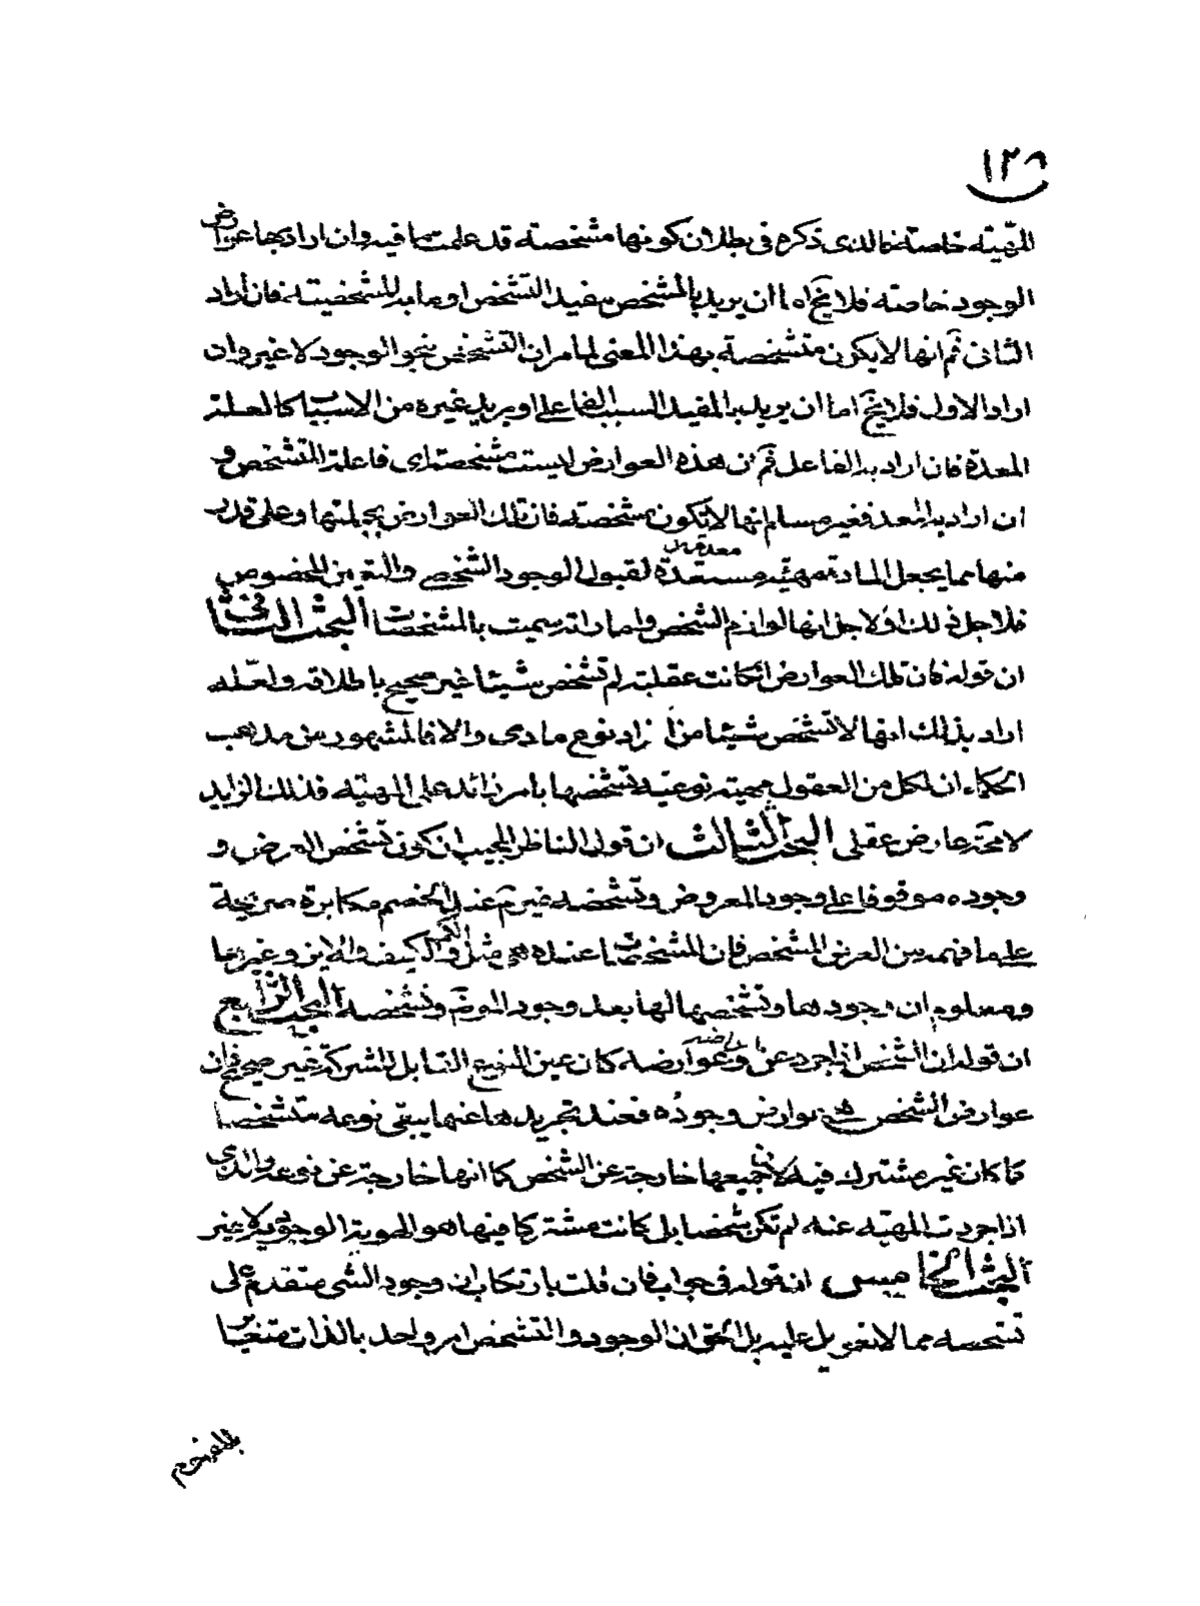 ١٢٩
المهيته خاصته فالذى ذكره فى بطلان كونها مشخصته قد علمت ما فيه وان اراد بها عوارض
الوجود خاصته فلا يخ اما ان يريد بالمشخص مفيد التشخص او ما به الشخصيته فان أراد
الثانى ثم انها لا يكون متشخصة بهذا المعنى لما مر ان التشخص بنحو الوجود لا غير وان
اراد الاول فلا يخ اما ان يريد بالمفيد السبب الفاعلى او يريد غيره من الاسباب كالعلة
المعدة فان اراد به الفاعل ثم ان هذه العوارض ليست مشخصة اى فاعلة التشخص و
ان اراد به المعد فغير مسلم انها لا تكون مشخصته فان تلك العوارض بجملتها وعلى قدر
منها مما يجعل المادة مهيئه مستعدة لقبول الوجود الشخصى والتعين المخصوص
فلاجل ذلك او لاجل انها لوازم الشخص وامارات سميت بالمشخصات البحث الثانى
ان قوله فان تلك العوارض ان كانت عقلية لم تشخص شيئا غير صحيح باطلاقه ولعله
اراد بذلك انها لا تشخص شيئا من افراد نوع مادى والا فالمشهور من مذهب
الحكماء ان لكل من العقول مهيته نوعيه تشخصها بامر زائد على المهيته فذلك الزايد
لا محة عارض عقلى البحث الثالث ان قول الناظر المجيب ان كون تشخص العرض و
وجوده موقوفا على وجود المعروض وتشخصه غير م عند الخصم مكابرة صريحة
على ما فهمه من العرض المشخص فان المشخصات عنده هى مثل الكم و الكيف والاين وغيرها
ومعلوم ان وجودها وتشخصها لها بعد وجود الموضع وتشخصه البحث الرابع
ان قوله ان الشخص اذا جرد عن عوارضه كان عين النوع القابل للشركة غير صحيح فان
عوارض الشخص هى عوارض وجوده فعند تجريدها عنها يبقى نوعه متشخصا
كما كان غير مشترك فيه لان جميعها خارجة عن الشخص كما انها خارجة عن نوعه والذى
اذا جردت المهيه عنه لم تكن شخصا بل كانت مشتركا فيها هو الهوية الوجودية لا غير
البحث الخامس ان قوله فى جواب فان قلت بارتكاب ان وجود الشى متقدم على
تشخصه مما لا تعويل عليه بل الحق ان الوجود والتشخص امر واحد بالذات متغاير